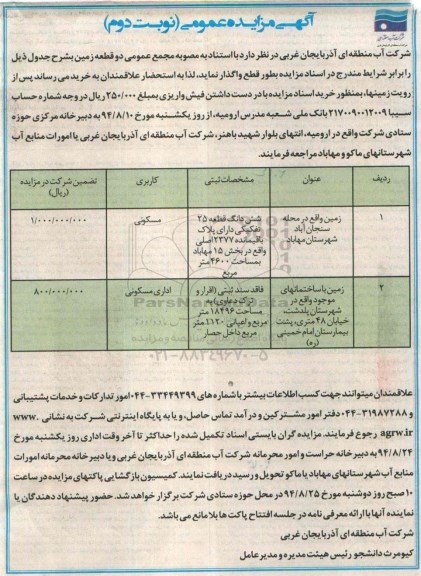 آگهی مزایده عمومی (نوبت دوم)
شرکت آب منطقه ای آذربایجان غربی در نظر دارد با استناد به مصوبه مجمع عمومی دو قطعه زمین بشرح جدول ذیل
را برابر شرایط مندرج در اسناد مزایده بطور قطع واگذار نماید، لذا به استحضار علاقمندان به خرید می رساند پس از
رویت زمینها، بمنظور خرید اسناد مزایده با در دست داشتن فیش واریزی بمبلغ ۲۵۰/۰۰۰ ریال در وجه شماره حساب
سیبا ۲۱۷۰۰۹۰۰۱۲۰۰۹ بانک ملی شعبه مدرس ارومیه، از روز یکشنبه مورخ ۹۴/۸/۱۰ به دبیرخانه مرکزی حوزه
ستادی شرکت واقع در ارومیه، انتهای بلوار شهید باهنر، شرکت آب منطقه ای آذربایجان غربی یا امورات منابع آب
شهرستانهای ماکو و مهاباد مراجعه فرمایند.
ردیف عنوان مشخصات ثبتی کاربری تضمین شرکت در مزایده
(ریال)
۱ زمین واقع در محله سنجان آباد شهرستان مهاباد ششدانگ قطعه ۲۵ تفکیکی دارای پلاک باقیمانده ۲۳۷۷ اصلی واقع در بخش ۱۵ مهاباد بمساحت ۴۶۰۰ متر مربع مسکونی ۱/۰۰۰/۰۰۰/۰۰۰
۲ زمین با ساختمانهای موجود واقع در شهرستان پلدشت، خیابان ۴۸ متری، پشت بیمارستان امام خمینی (ره) فاقد سند ثبتی (اقرار و ترک دعاوی) به مساحت ۱۸۴۹۶ متر مربع و اعیانی ۱۱۲۰ متر مربع داخل حصار اداری مسکونی ۸۰۰/۰۰۰/۰۰۰
ParsNamadData
۰۲۱-۸۸۳۴۹۶۷۰-۵
علاقمندان میتوانند جهت کسب اطلاعات بیشتر با شماره های ۳۳۴۴۹۳۹۹-۰۴۴ امور تدارکات و خدمات پشتیبانی
و ۳۱۹۸۷۲۸۸-۰۴۴ دفتر امور مشترکین و درآمد تماس حاصل، و یا به پایگاه اینترنتی شرکت به نشانی www.
agrw.ir رجوع فرمایند. مزایده گران بایستی اسناد تکمیل شده را حداکثر تا آخر وقت اداری روز یکشنبه مورخ
۹۴/۸/۲۴ به دبیرخانه حراست و امور محرمانه شرکت آب منطقه ای آذربایجان غربی و یا دبیرخانه محرمانه امورات
منابع آب شهرستانهای مهاباد یا ماکو تحویل و رسید دریافت نمایند. کمیسیون بازگشایی پاکتهای مزایده در ساعت
۱۰ صبح روز دوشنبه مورخ ۹۴/۸/۲۵ در محل حوزه ستادی شرکت برگزار خواهد شد. حضور پیشنهاد دهندگان یا
نماینده آنها با ارائه معرفی نامه در جلسه افتتاح پاکت ها بلامانع می باشد.
شرکت آب منطقه ای آذربایجان غربی
کیومرث دانشجو رئیس هیئت مدیره و مدیر عامل